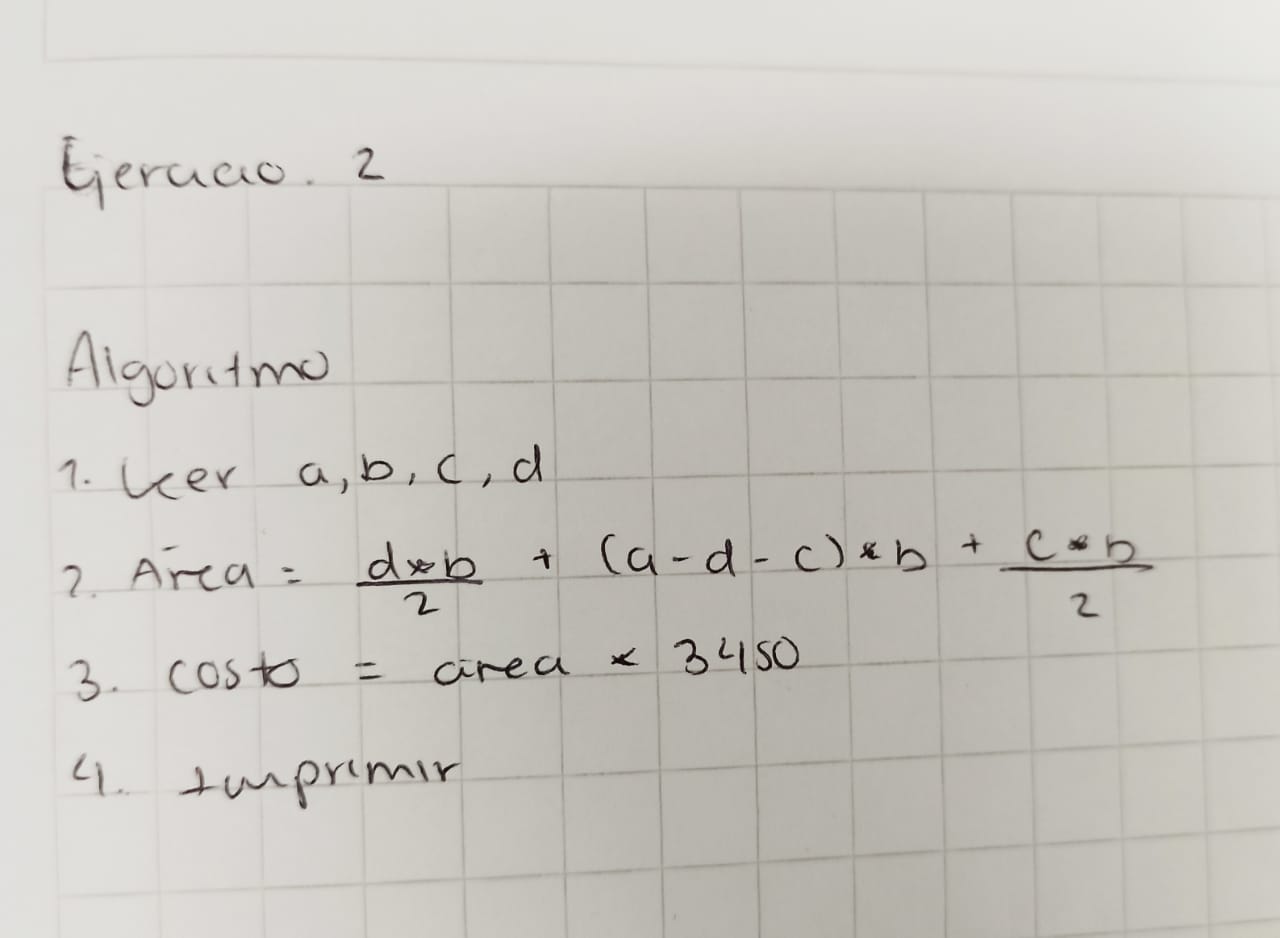 Ejercicio. 2
Algoritmo
1. Leer a, b, c, d
2. Área = d*b/2 + (a-d-c)*b + c*b/2
3. costo = área * 3450
4. Imprimir